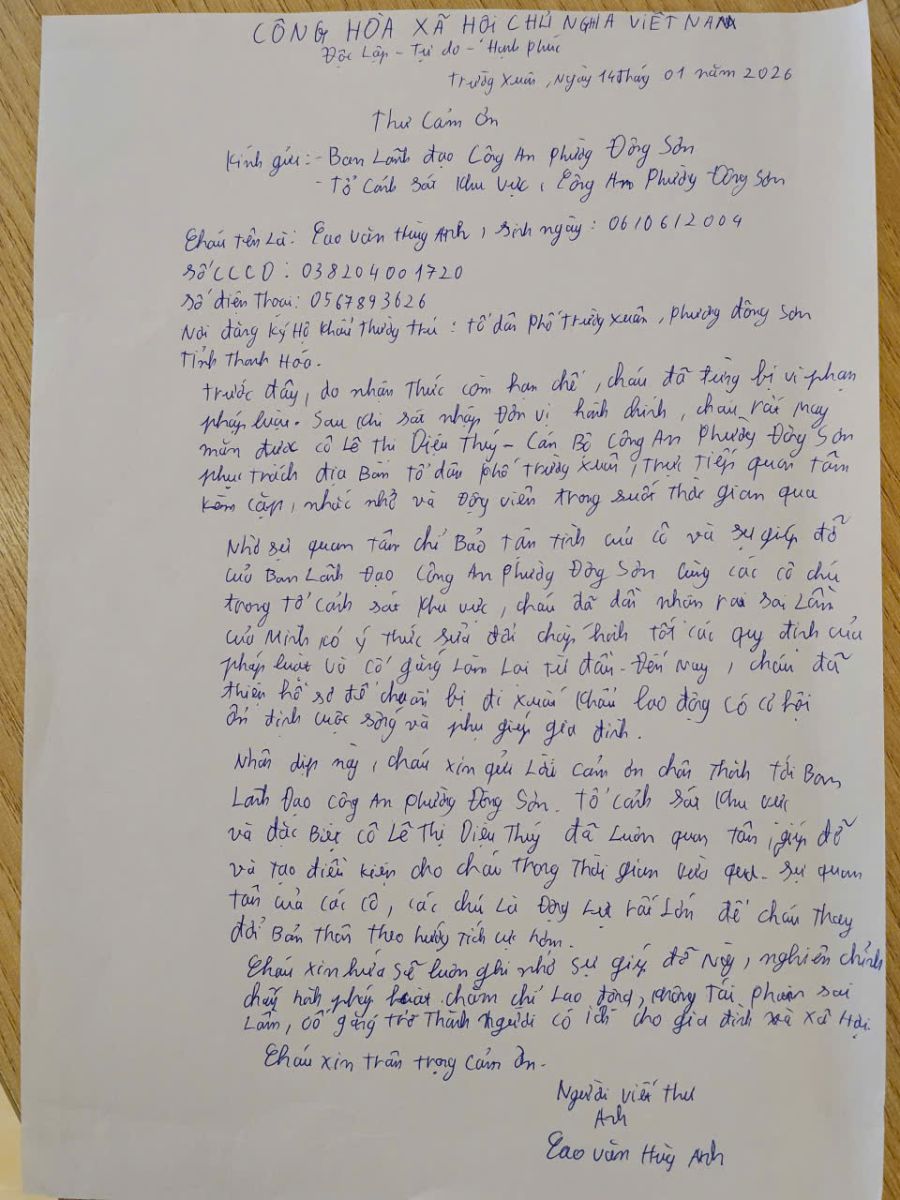 CÔNG HÒA XÃ HỘI CHỦ NGHA VIỆT NAM
Độc Lập - Tự do - Hạnh phúc
Trường Xuân, Ngày 14 tháng 01 năm 2026
Thư Cảm Ơn
Kính gửi: - Ban Lãnh đạo Công An phường Đông Sơn
- Tổ Cảnh sát Khu vực, Công An Phường Đông Sơn
Cháu tên Là: Cao Văn Hùng Anh, sinh ngày: 06/06/2004
Số CCCD: 038204001720
Số điện thoại: 0567893626
Nơi đăng ký Hộ Khẩu Thường trú: Tổ dân phố Trường Xuân, phường đông Sơn
Tỉnh Thanh Hoá.
Trước đây, do nhận Thức còn hạn chế, cháu đã từng bị vi phạm
pháp luật. Sau khi sát nhập Đơn vị hành chính, cháu rất may
mắn được cô Lê Thị Diệu Thuý - Cán Bộ Công An Phường Đông Sơn
phụ trách địa Bàn tổ dân phố trường Xuân, trực tiếp quan tâm
kèm cặp, nhắc nhở và Động viên trong suốt thời gian qua
Nhờ sự quan tâm chỉ Bảo tận tình của cô và sự giúp đỡ
của Ban Lãnh Đạo Công An phường Đông Sơn cùng các cô chú
trong tổ cảnh sát khu vực, cháu đã dần nhận ra sai Lầm
của Mình, có ý thức sửa đổi chấp hành tốt các quy định của
pháp luật và cố gắng Làm Lại từ đầu. Đến nay, cháu đã
thiện hồ sơ để chuẩn bị đi xuất khẩu lao động có cơ hội
ổn định cuộc sống và phụ giúp gia đình.
Nhân dịp này, cháu xin gửi Lời cảm ơn chân Thành tới Ban
Lãnh Đạo Công An phường Đông Sơn. Tổ cảnh sát Khu vực
và đặc Biệt cô Lê Thị Diệu Thuý đã Luôn quan tân, giúp đỡ
và tạo điều kiện cho cháu trong Thời gian vừa qua. Sự quan
tâm của các cô, các chú Là Động Lực rất Lớn để cháu Thay
đổi Bản thân theo hướng tích cực hơn.
Cháu xin hứa sẽ luôn ghi nhớ sự giúp đỡ này, nghiên chỉnh
chấp hành pháp luật. chăm chỉ Lao động, không tái phạm sai
Lầm, cố gắng trở Thành người có ích cho gia đình và xã Hội.
Cháu xin trân trọng cảm ơn.
Người viết thư
Anh
Cao Văn Hùng Anh